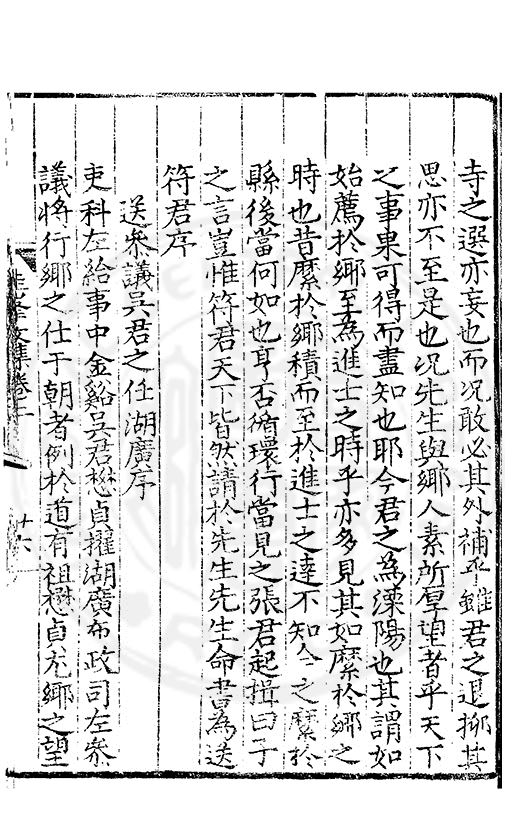 寺之選亦妄也而况敢必其外補乎雖君之退抑其
思亦不至是也况先生與鄉人素所厚望者乎天下
之事果可得而盡知也耶今君之為溧陽也其謂如
始薦於鄉至為進士之時乎亦多見其如縻於鄉之
時也昔縻於鄉積而至於進士之達不知今之縻於
縣後當何如也亨否循環行當見之張君起揖曰子
之言豈惟符君天下皆然請於先生先生命書為送
符君序
送叅議吳君之任湖廣序
吏科左給事中金谿吳君懋貞擢湖廣布政司左叅
議將行鄉之仕于朝者例於道有祖懋貞尤鄉之望
峯文集卷二
十六